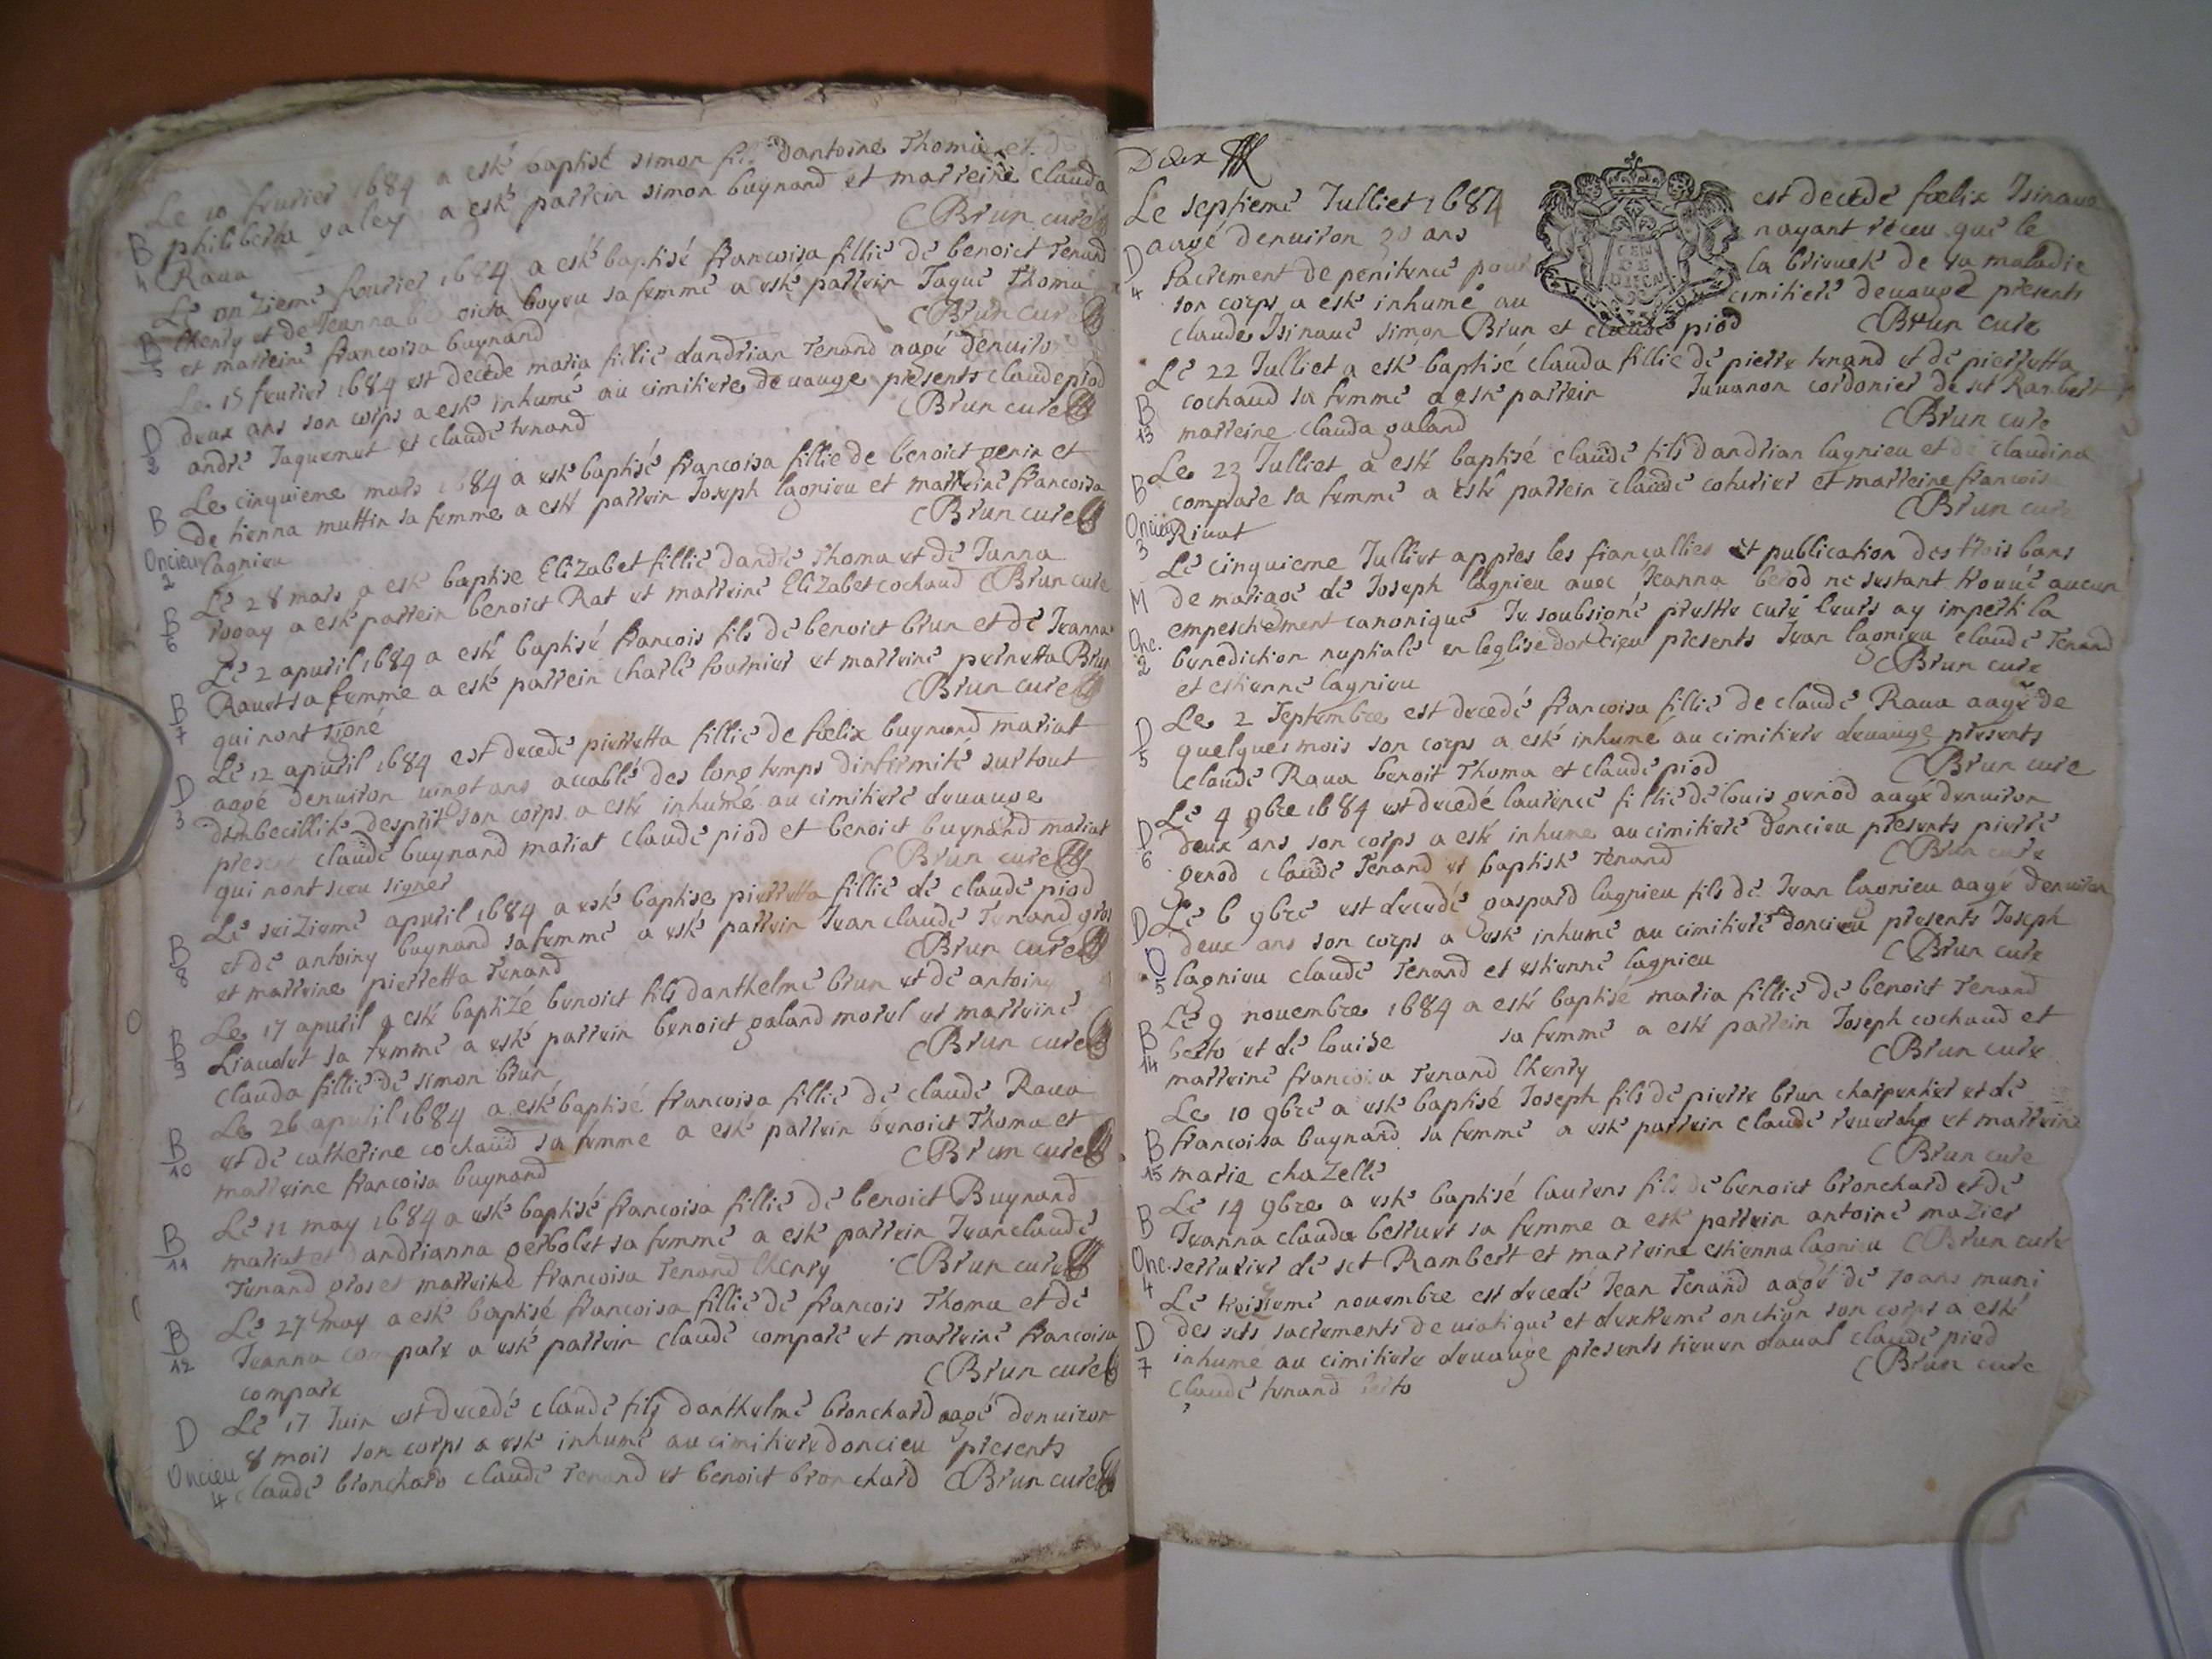 Le 10 feurier 1684 a esté baptisé simon fils dantoine Thoma et d
B philiberta valey a esté parrein simon buynand et marreine clauda
4 Raua Brun curé
Le onzieme feurier 1684 a esté baptisé francoisa fillie de benoict Tenand
B lhenry et de Jeanna be oicta boyeu sa femme a esté parrein Jaque Thoma
5 et marreine francoisa buynand Brun curé
Le 15 feurier 1684 est decede maria fillie dandrian Tenand aagé denuiro
D deux ans son corps a esté inhumé au cimitiere de uauge presents claude piod
2 andré Jaquemet et claude tenand Brun curé
Le cinquieme mars 1684 a esté baptisé francoisa fillie de benoict genin et
B de tienna muttin sa femme a esté parrein Joseph lagnieu et marreine francoisa
Oncieu 2 lagnieu Brun curé
Le 28 mars a esté baptise Elizabet fillie dandré Thoma et de Janna
B rogay a esté parrein benoict Rat et marreine Elizabet cochaud Brun curé
6
Le 2 apuril 1684 a esté baptisé francois fils de benoict brun et de Jeanna
B Rauet sa femme a esté parrein charle fournier et marreine pernetta Brun
7 qui nont signé Brun curé
Le 12 apuril 1684 est decedé pierretta fillie de foelix buynand mariat
D aagé denuiron uingt ans accablé des long temps dinfirmité surtout
3 dimbecillité desprit son corps a esté inhumé au cimitiere deuauge
present claude buynand mariat claude piod et benoict buynand mariat
qui nont sceu signer Brun curé
Le seizieme apuril 1684 a esté baptise pierretta fillie de claude piod
B et de antoiny buynand sa femme a esté parrein Jean claude Tenand gros
8 et marreine pierretta Tenand Brun curé
Le 17 apuril a esté baptizé benoict fils danthelme brun et de antoiny
B Liaudet sa femme a esté parrein benoict galand morel et marreine
9 clauda fillie de simon brun Brun curé
Le 26 apuril 1684 a esté baptisé francoisa fillie de claude Raua
B et de catherine cochaud sa femme a esté parrein benoict Thoma et
10 marreine francoisa buynand Brun curé
Le 11 may 1684 a esté baptisé francoisa fillie de benoict Buynand
B mariat et dandrianna gerbolet sa femme a esté parrein Jean claude
11 Tenand gros et marreine francoisa Tenand lhenry Brun curé
Le 27 may a esté baptisé francoisa fillie de francois Thoma et de
B Jeanna compare a esté parrein claude compare et marreine francoisa
12 compare Brun curé
Le 17 Juin est decedé claude fils danthelme bronchard aagé denuiron
D 8 mois son corps a esté inhumé au cimitiere doncieu presents
Oncieu 4 claude bronchard claude Tenand et benoict bronchard Brun curé
Deux
Le septieme Julliet 1684 est decedé foelix Isinaue
D aagé denuiron 30 ans nayant receu que le
4 sacrement de penitence pour la briueté de sa maladie
son corps a esté inhumé au cimitiere deuauge presents
claude Isinaue simon Brun et claude piod Brun curé
Le 22 Julliet a esté baptisé clauda fillie de pierre tenand et de pierretta
B cochaud sa femme a esté parrein Juuanon cordonier de st Rambert
13 marreine clauda galand Brun curé
Le 23 Julliet a esté baptisé claude fils dandrian lagnieu et de claudina
B compare sa femme a esté parrein claude coturier et marreine francoisa
Oncieu 3 Riuat Brun curé
Le cinquieme Julliet appres les fiançallies et publication des trois bans
M de mariage de Joseph lagnieu auec Jeanna berod ne sestant trouué aucun
empeschement canonique Je soubsigné prestre curé leurs ay imperti la
Onc. 2 benediction nuptiale en leglise doncieu presents Jean lagnieu claude Tenand
et estienne lagnieu Brun curé
Le 2 Septembre est decedé francoisa fillie de claude Raua aagé de
D quelques mois son corps a esté inhumé au cimitiere deuauge presents
5 claude Raua benoit Thoma et claude piod Brun curé
Le 4 9bre 1684 est decedé laurence fillie de louis genod aagé denuiron
D deux ans son corps a esté inhumé au cimitiere doncieu presents pierre
6 genod claude Tenand et baptiste Tenand Brun curé
Le 6 9bre est decedé gaspard lagnieu fils de Jean lagnieu aagé denuiron
D deux ans son corps a esté inhumé au cimitiere doncieu presents Joseph
O 5 lagnieu claude Tenand et estienne lagnieu Brun curé
Le 9 nouembre 1684 a esté baptisé maria fillie de benoict Tenand
B berto et de louise sa femme a esté parrein Joseph cochaud et
14 marreine francoisa Tenand lhenry Brun curé
Le 10 9bre a esté baptisé Joseph fils de pierre brun charpentier et de
B francoisa buynand sa femme a esté parrein claude et marreine
15 marie chazelle Brun curé
Le 14 9bre a esté baptisé laurens fils de benoict bronchard et de
B Jeanna clauda berruet sa femme a esté parrein antoine mazier
Onc. 4 serrurier de sct Rambert et marreine estienna lagnieu Brun curé
Le troisieme nouembre est decedé Jean Tenand aagé de 70 ans muni
D des scts sacrements de uiatique et dextreme onction son corps a esté
7 inhumé au cimitiere deuauge presents claude piod
claude tenand berto Brun curé